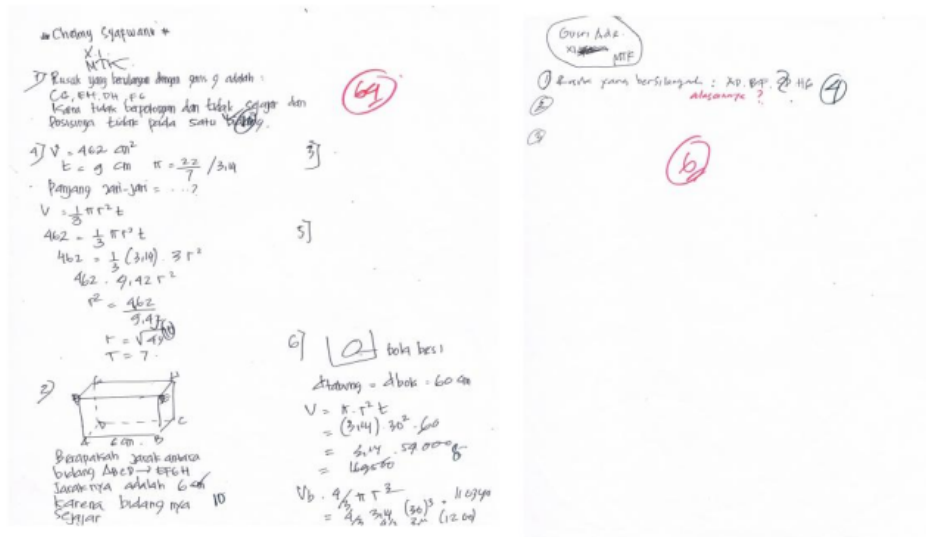 * Cholmy Syafwani *
X.I.
MTK
1] Rusak yang bersilangan dengan garis g adalah :
CG, EH, DH, FG
Karna tidak berpotongan dan tidak sejajar dan
Posisinya tidak pada satu
64
4] V = 462 cm²
t = 9 cm π = 22/7 / 3,14
Panjang jari-jari = ...?
V = 1/3 π r² t
462 = 1/3 π r² t
462 = 1/3 (3,14) . 3 r²
462 . 9,42 r²
r² = 462/9,42
r = √49
r = 7.
2]
A 6 cm. B C
Berapakah jarak antara
bidang ABCD → EFGH
Jaraknya adalah 6 cm
Karena bidang nya 10
Sejajar
3]
5]
6] bola besi
d tabung = d bola = 60 cm
V = π . r² t
= (3,14) . 30² . 60
= 3,14 . 54.000 8
Vb . 4/3 π r³
= 4/3 3,14 (30)³
Gusri Ade
XI
MTK
① yang bersilangan : AD, BF, HG ④
alasannya ?
②
③
6